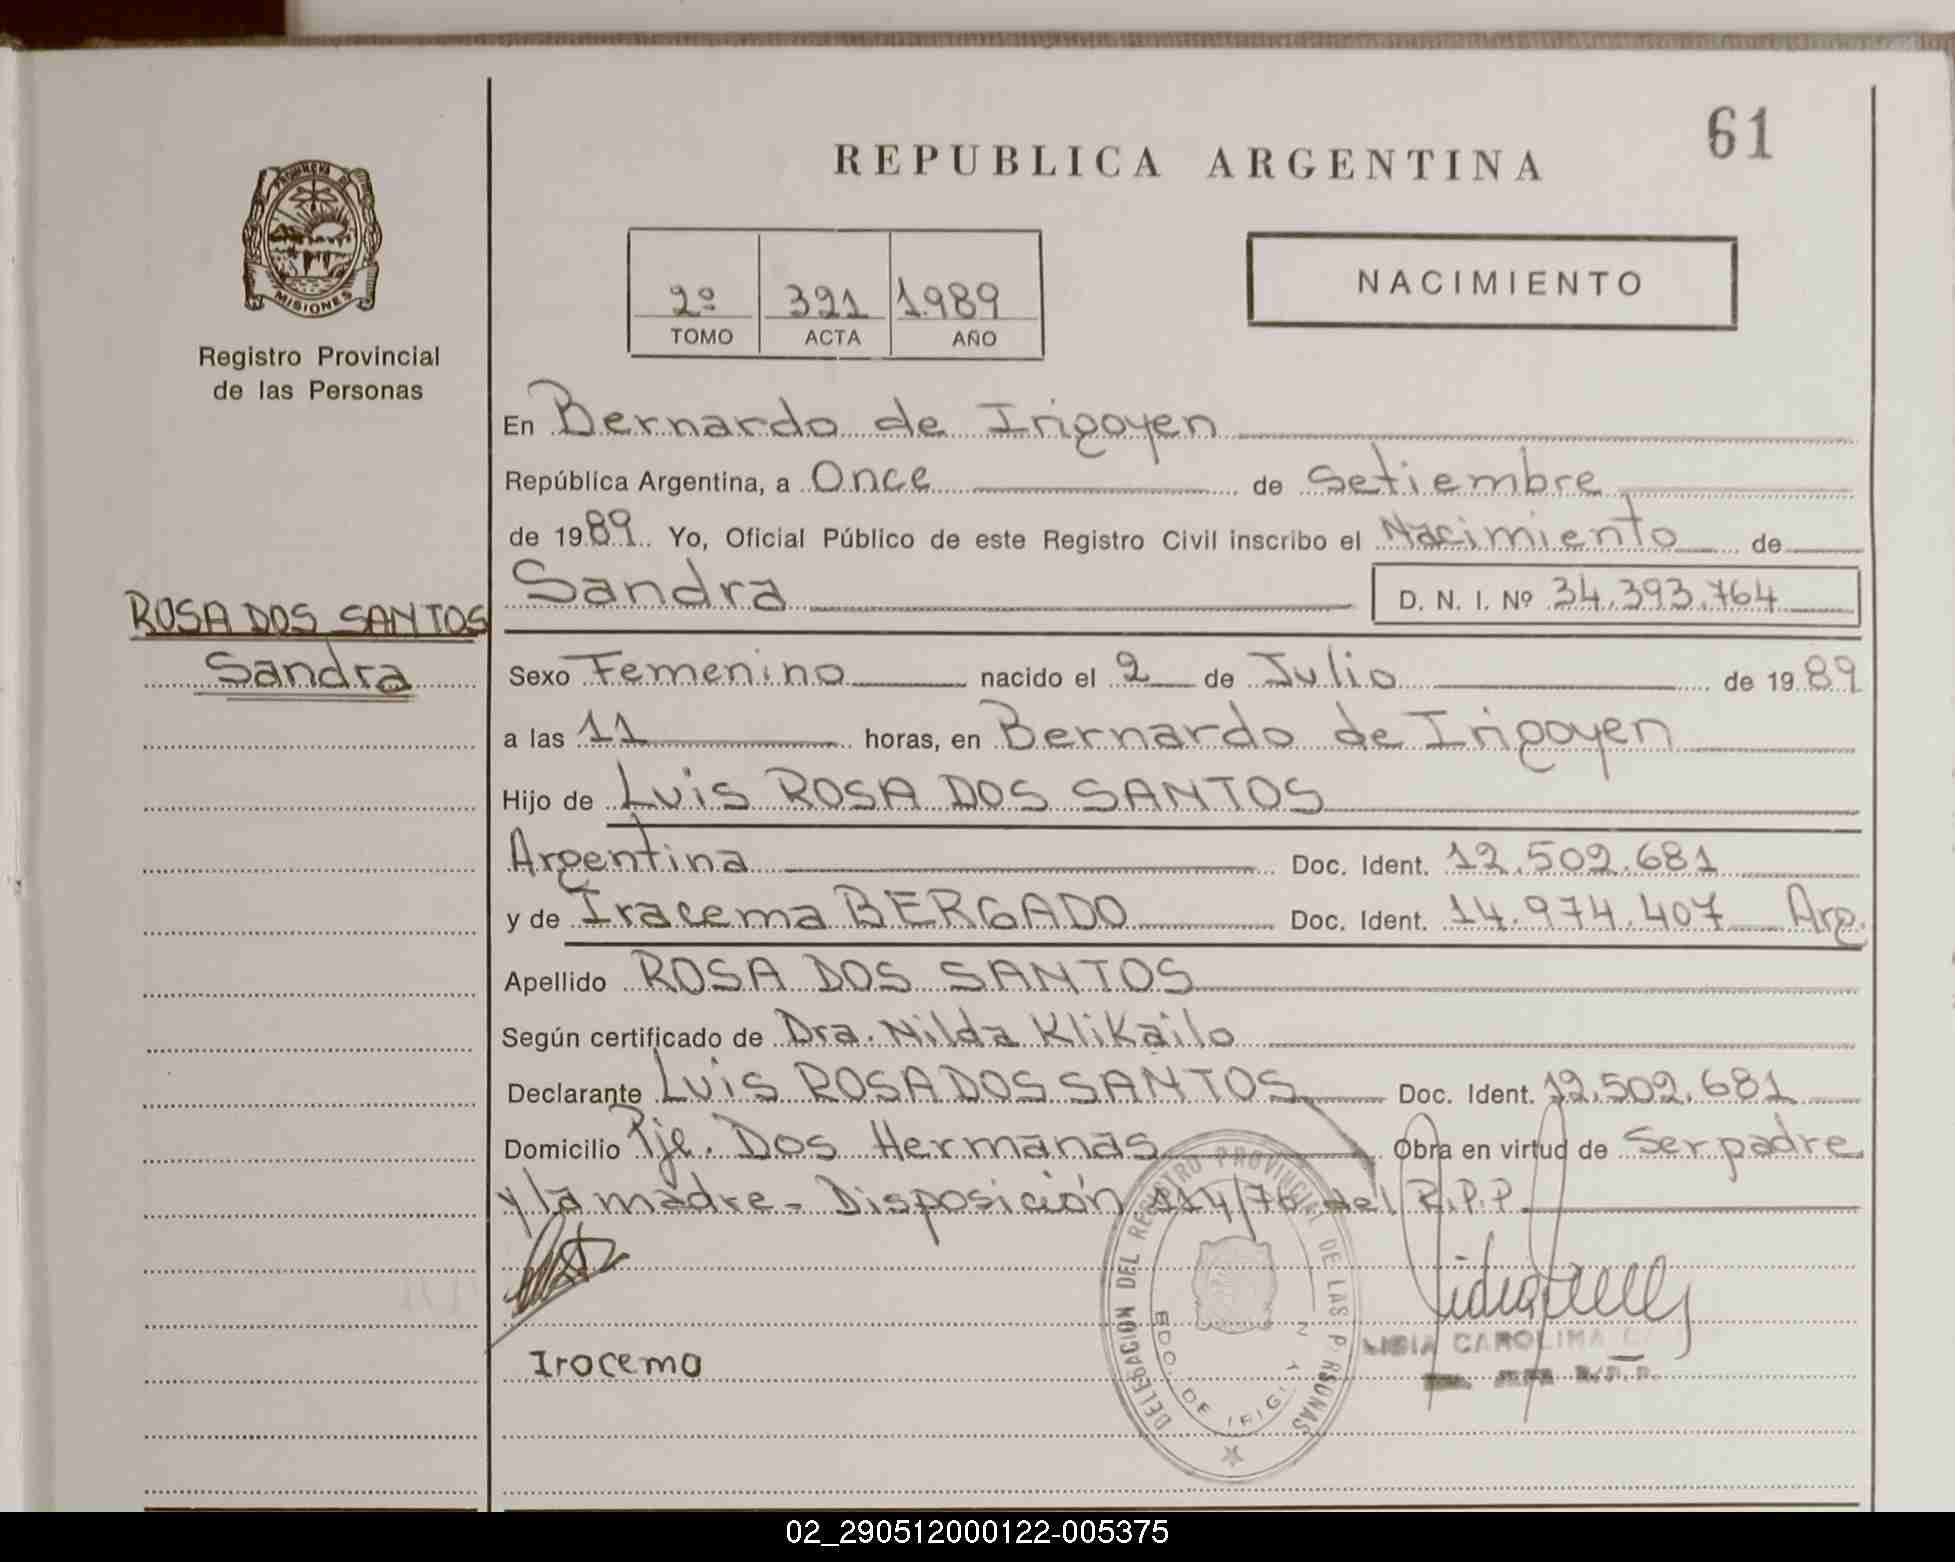 61
REPUBLICA ARGENTINA
PROVINCIA DE
MISIONES
Registro Provincial
de las Personas
2º 321 1.989
TOMO ACTA AÑO
NACIMIENTO
En Bernardo de Irigoyen
República Argentina, a Once de Setiembre
de 1989. Yo, Oficial Público de este Registro Civil inscribo el Nacimiento de
Sandra D. N. I. Nº 34.393.764
ROSA DOS SANTOS
Sandra
Sexo Femenino nacido el 2 de Julio de 1989
a las 11 horas, en Bernardo de Irigoyen
Hijo de Luis ROSA DOS SANTOS
Argentina Doc. Ident. 12.502.681
y de Iracema BERGADO Doc. Ident. 14.974.407 Arg.
Apellido ROSA DOS SANTOS
Según certificado de Dra. Nilda Klikailo
Declarante Luis ROSA DOS SANTOS Doc. Ident. 12.502.681
Domicilio Pje. Dos Hermanas Obra en virtud de Ser padre
y la madre - Disposición 114/70 del R.P.P
Irocemo
DELEGACION DEL REGISTRO PROVINCIAL DE LAS P RSONAS
BDO. DE IRIG.
LIDIA CAROLINA
R.P.P.
02_290512000122-005375